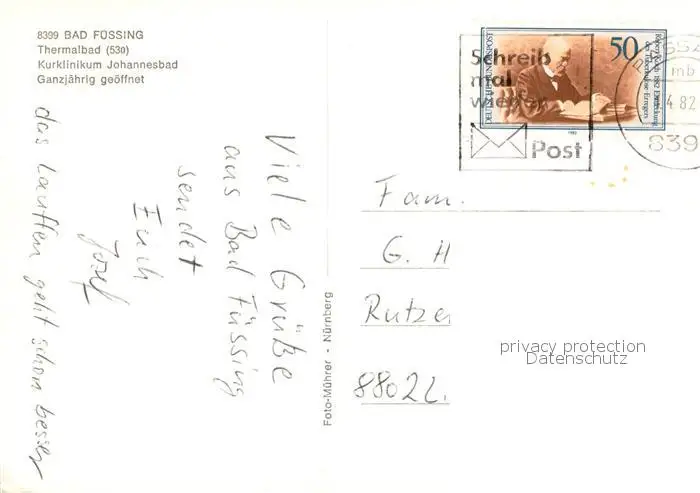 8399 BAD FÜSSING
Thermalbad (530)
Kurklinikum Johannesbad
Ganzjährig geöffnet
Viele Grüße
aus Bad Füssing
sendet
Euch
Josef
das Lauffen geht schon besser
Foto-Mührer - Nürnberg
DEUTSCHE BUNDESPOST
50
Robert Koch · 1882 Entdeckung
der Tuberkulose-Erreger
1982
Schreib
mal
wieder
Post
mb
4 82
839
Fam.
G. H
8802
privacy protection
Datenschutz